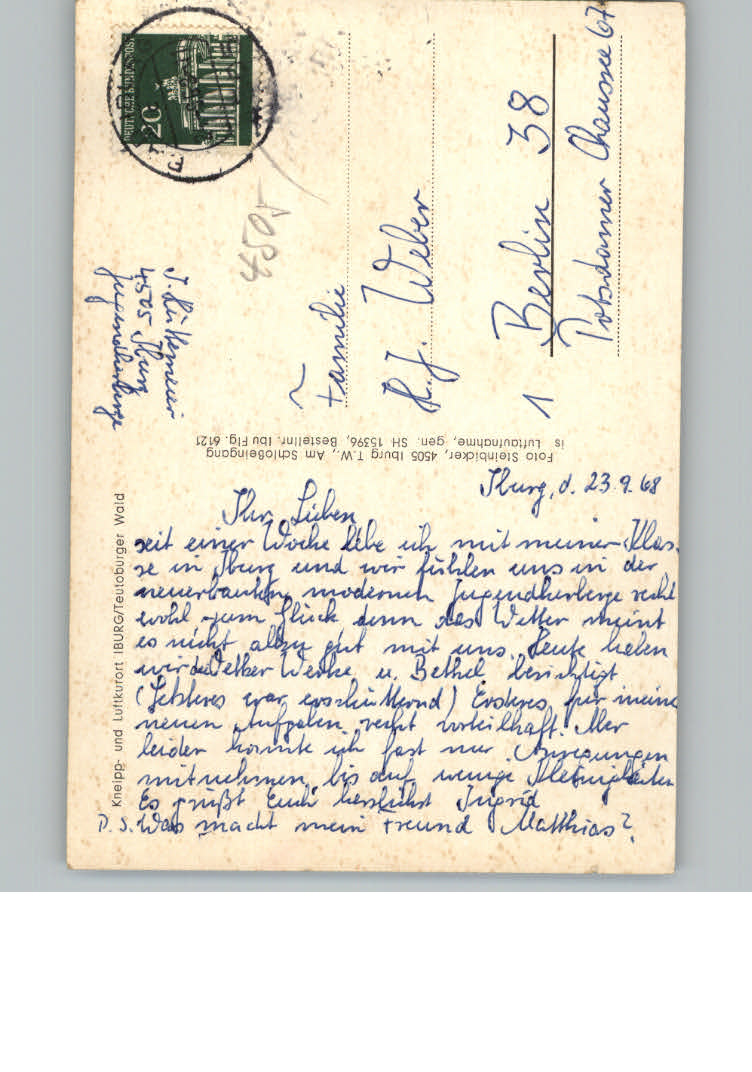 Iburg, d. 23.9.68
Ihr Lieben,
seit einer Woche lebe ich mit meiner Klas-
se in Iburg und wir fühlen uns in der
neuerbauten, modernen Jugendherberge recht
wohl zum Glück denn das Wetter meint
es nicht allzu gut mit uns. Heute haben
wir die Oetker Werke u. Bethel besichtigt
(Letzteres war erschütternd) Ersteres für meine
neuen Aufgaben recht vorteilhaft. Aber
leider konnte ich fast nur Anregungen
mitnehmen, bis auf wenige Kleinigkeiten
Es grüßt Euch herzlichst Ingrid
P.S. Was macht mein Freund Matthias?
Kneipp- und Luftkurort IBURG/Teutoburger Wald
Foto Steinbicker, 4505 Iburg T.W., Am Schloßeingang
is Luftaufnahme, gen. SH 15396, Bestellnr. Ibu Flg. 6121
4505 Iburg
Jugendherberge
4505
DEUTSCHE BUNDESPOST
20
Familie
H.J. Weber
1 Berlin 38
Potsdamer Chaussee 67